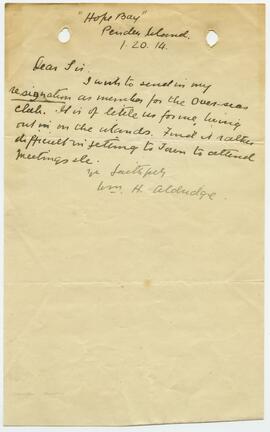 "Hope Bay"
Pender Island.
1.20.14.
Dear Sir.
I wish to send in my
resignation as member for the Over-seas
club. It is of little us for me, living
out in on the islands. Find it rather
difficult in getting to Town to attend
meetings etc.
Faithfuly
Wm. H. Aldridge.